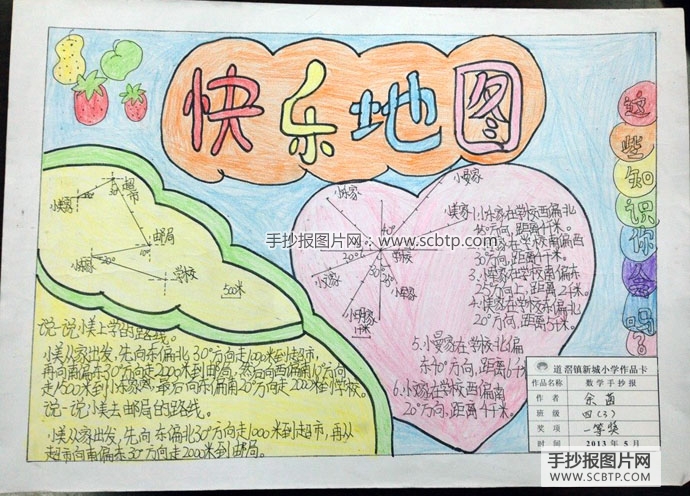 快乐地图
这些知识你会吗?
小美家
超市
邮局
小东家
学校
500米
说一说小美上学的路线。
小美从家出发,先向东偏北30°方向走1000米到超市,
再向南偏东30°方向走2000米到邮局,然后向西偏南10°方向
走1500米到小东家,最后向东偏南20°方向走2000米到学校。
说一说小美去邮局的路线。
小美从家出发,先向东偏北30°方向走1000米到超市,再从
超市向南偏东30°方向走2000米到邮局。
小东家
小曼家
40°
20°
学校
30°
25°
小军家
小明家
1千米
1.小东家在学校西偏北
45°方向,距离4千米。
方向,距离
3.小军家在学校南偏东
25°方向上,距离2千米。
20°方向,距离5千米。
5.小曼家在学校北偏
东40°方向,距离6千米
在学校西偏南
20°方向,距离4千米。
手抄报图片网 - www.scbtp.com
道滘镇新城小学作品卡
作品名称 数学手抄报
作者
班级 四(3)
奖项 一等奖
时间 2013年5月
手抄报图片网
WWW.SCBTP.COM